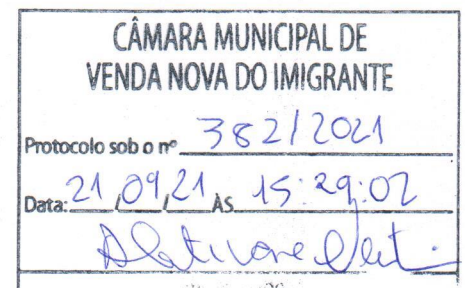 CÂMARA MUNICIPAL DE
VENDA NOVA DO IMIGRANTE
Protocolo sob o nº 382/2021
Data: 21/09/21 ÀS 15:29:02